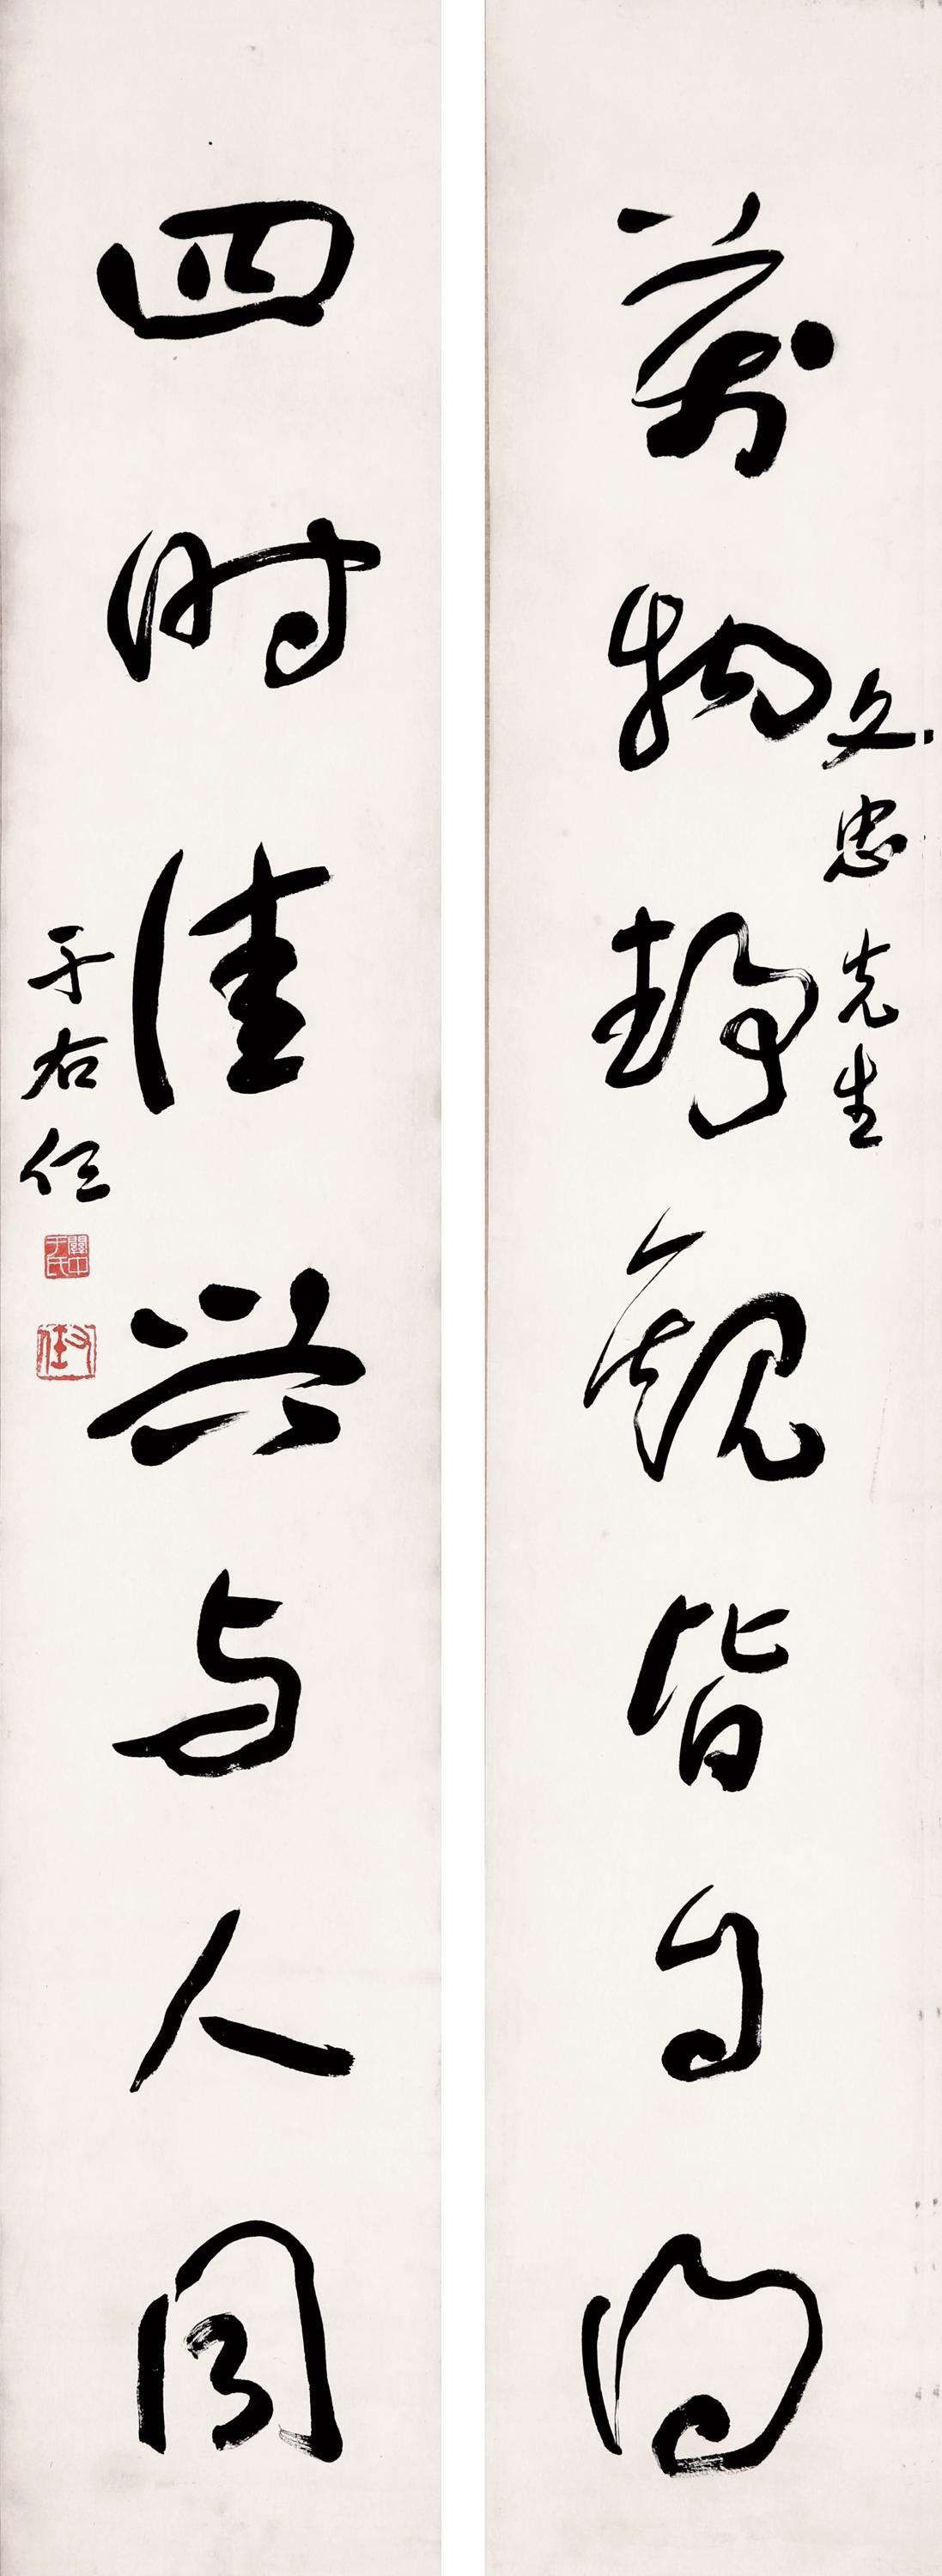 文忠先生
萬物静觀皆自得
四时佳兴与人同
于右任
關中于氏